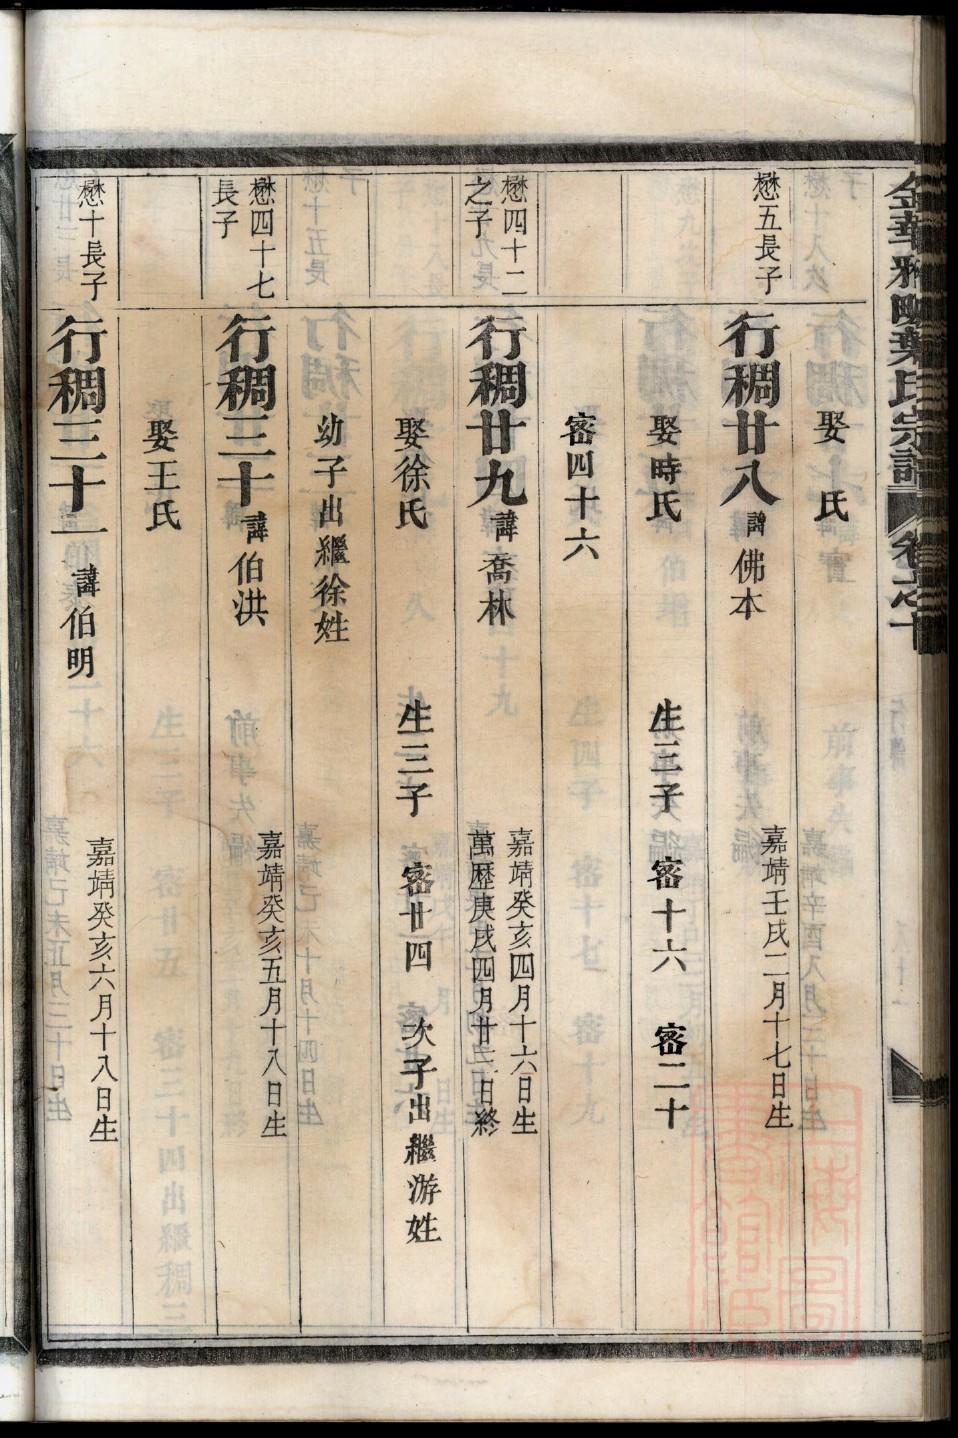 金華雅畈葉氏宗譜 卷之十
娶 氏
懋五長子
行稠廿八 諱佛本 嘉靖壬戌二月十七日生
娶時氏 生三子 密十六 密二十
密四十六
懋四十二之子
行稠廿九 諱喬林 嘉靖癸亥四月十六日生
萬歷庚戌四月廿二日終
娶徐氏 生三子 密廿四 次子出繼游姓
幼子出繼徐姓
懋四十七長子
行稠三十 諱伯洪 嘉靖癸亥五月十八日生
娶王氏
懋十長子
行稠三十一 諱伯明 嘉靖癸亥六月十八日生